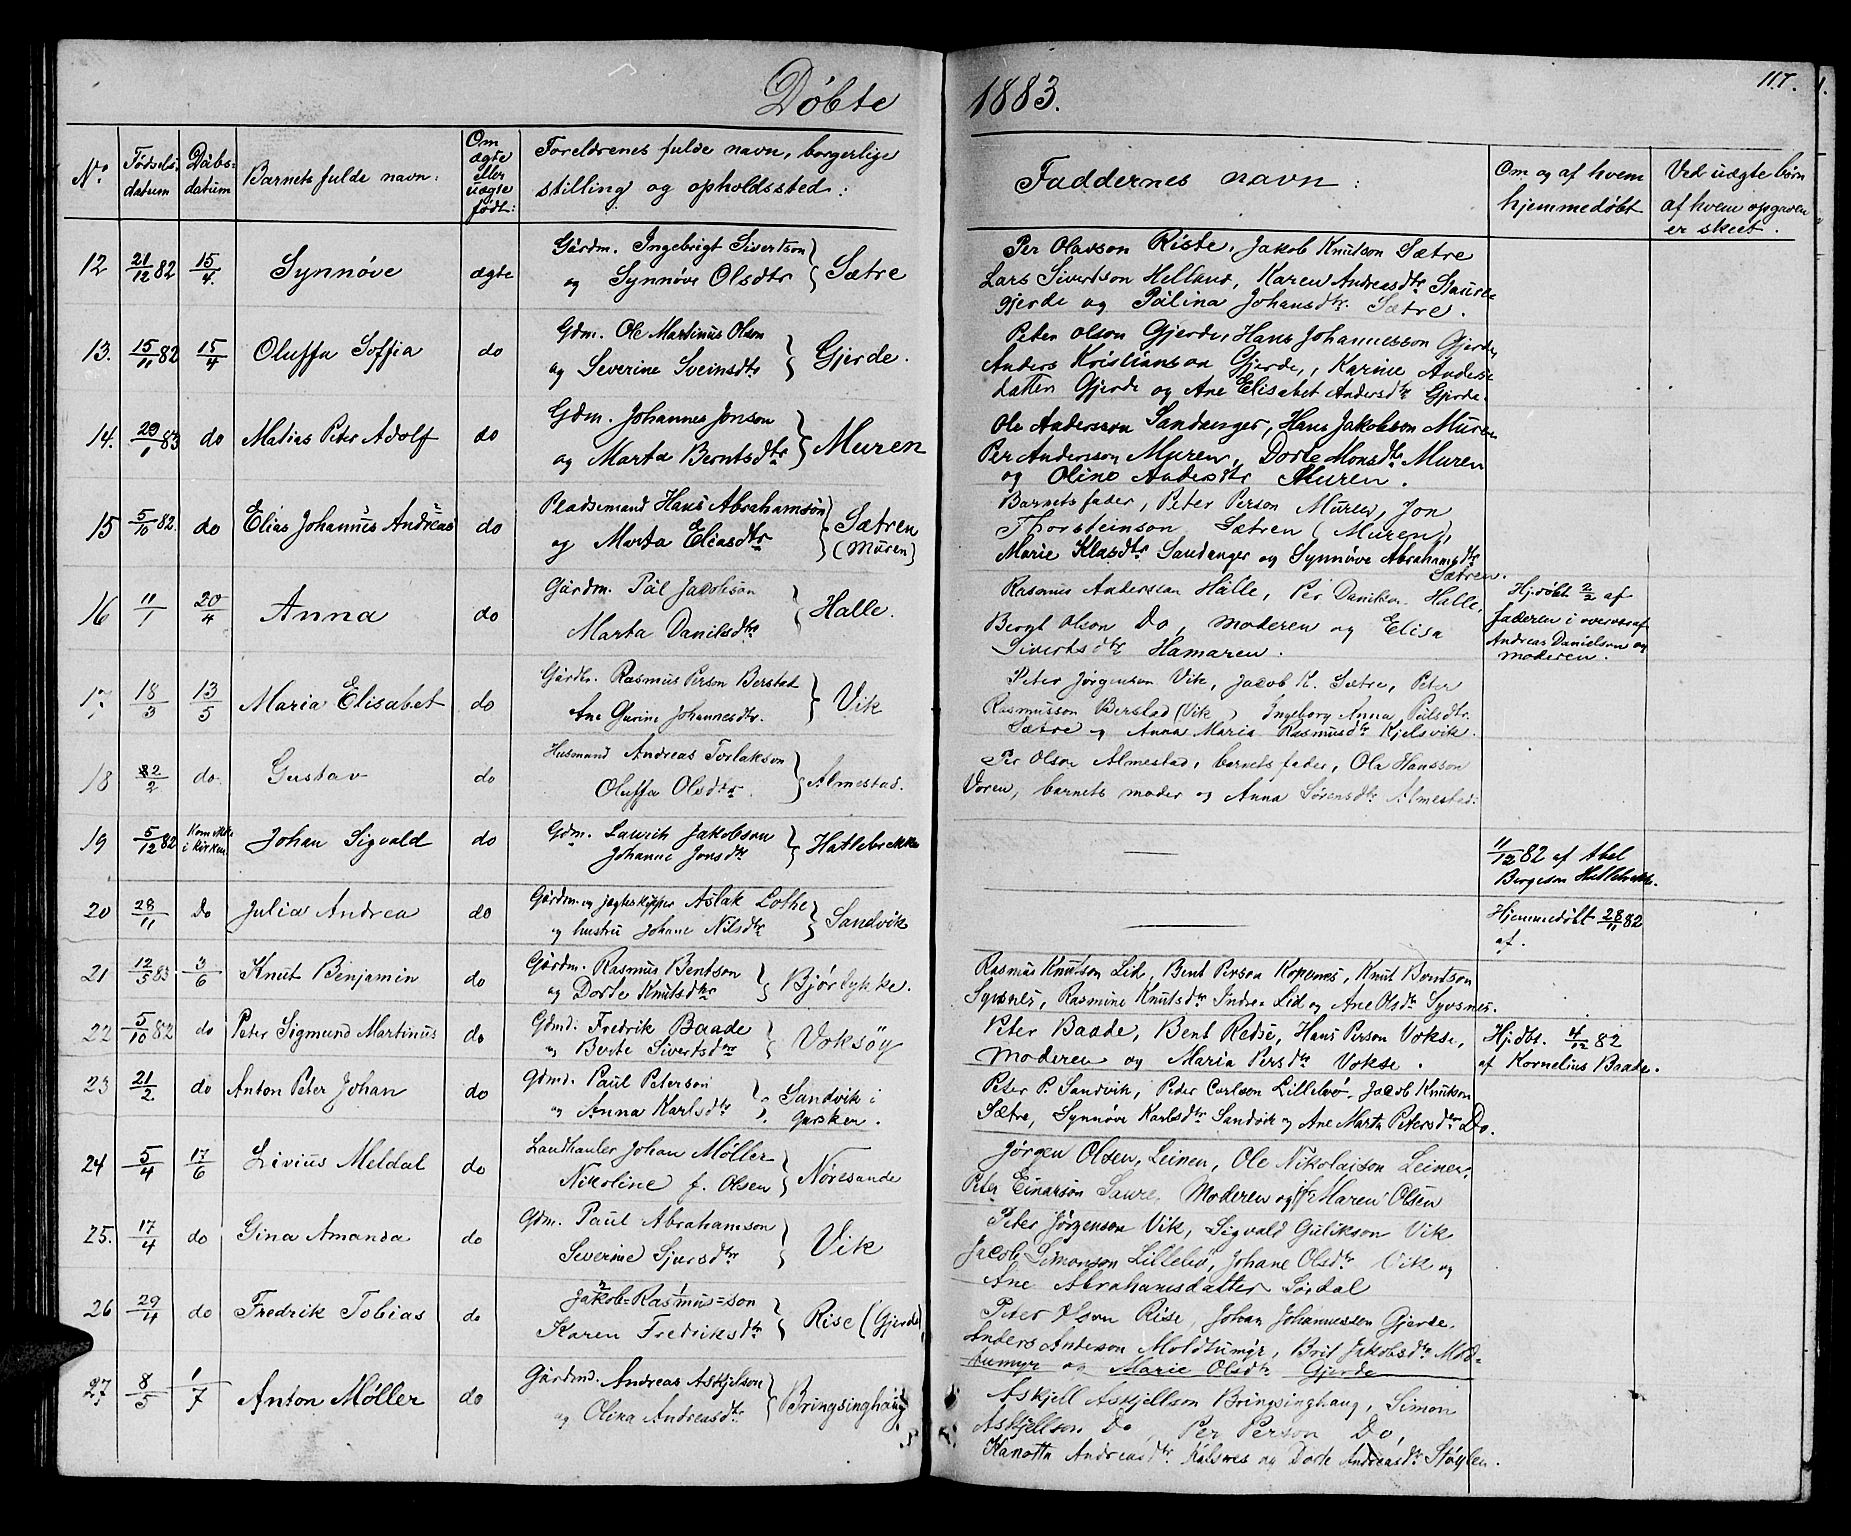 117.
Döbte 1883.
No. | Födsels-datum | Dåbs-datum | Barnets fulde navn: | Om ægte eller uægte födt: | Foreldrenes fulde navn, borgerlige stilling og opholdssted: | Faddernes navn: | Om og af hvem hjemmedöbt | Ved uægte börn af hvem opgaven er skeet.
12 21/12 82 15/4. Synnöve ægte Gårdm. Ingebrigt Sivertson
og Synnöve Olsdtr } Sætre
Per Olavson Riste, Jakob Knutson Sætre
Lars Sivertson Helland, Karen Andreasdtr Saure-
gjerde og Pålina Johansdtr. Sætre.
13. 15/11 82 15/4 Oluffa Soffia do Gdm. Ole Martinus Olson
og Severine Sveinsdtr } Gjerde.
Peter Olson Gjerde, Hans Johannesson Gjerde,
Anders Kristianson Gjerde, Karine Anders-
datter Gjerde og Ane Elisabet Andersdtr Gjerde.
14. 29/1 83 do Matias Peter Adolf do Gdm. Johannes Jonson
og Marta Berntsdtr } Muren
Ole Andersson Sandanger, Hans Jakobson Muren
Per Andersson Muren, Dorte Monsdtr Muren
og Oline Andersdtr Muren.
15 5/10 82. do Elias Johannes Andreas do Pladsemand Hans Abrahamson
og Marta Eliasdtr } Sætren
(Muren)
Barnets fader, Peter Person Muren, Jon
Thorsteinson Sætren (Muren),
Marie Klasdtr Sandanger og Synnöve Abrahamsdtr
Sætren.
16 11/1 20/4 Anna do Gårdm. Pål Jacobson
Marta Danilsdtr } Halle.
Rasmus Andersson Halle, Per Danilson Halle,
Bergt Olson Do, moderen og Elisa
Sivertsdtr Hamaren.
Hj.döbt 2/2 af
faderen i overvær af
Andreas Danielson og
moderen.
17. 18/3 13/5 Maria Elisabet do Gårdbr. Rasmus Person Berstad
Ane Gurine Johannesdtr. } Vik
Peter Jörgenson Vik, Jacob K. Sætre, Peter
Rasmusson Berstad (Vik) Ingeborg Anna Pålsdtr.
Sætre og Anna Maria Rasmusdtr Kjelsvik.
18 22/2 do. Gustav do Husmand Andreas Torlakson
Oluffa Olsdtr. } Almestad.
Per Olson Almestad, barnets fader, Ola Hansson
Voren, barnets moder og Anna Sörensdtr Almestad.
19 5/12 82 Kom ikke
i kirken Johan Sigvald do Gdm. Laurits Jakobson
Johanne Jonsdtr } Hatlebrekke
11/12 82 af Abel
Bergeson Hatlebrekke.
20 28/11 Do Julia Andrea do Gårdm. og jægteskipper Aslak Lothe
og hustru Johane Nilsdtr } Sandvik
Hjemmedöbt 28/11 82
af.
21 12/3 83. 3/6 Knut Benjamin do Gårdm. Rasmus Bentson
og Dorte Knutsdtr } Björlykke.
Rasmus Knutson Lid, Bent Person Kopernes, Knut Bentson
Syvsnes, Rasmine Knutsdtr Indre-Lid og Ane Olsdtr Syvsnes.
22 5/10 82 do Peter Sigmund Martinus do Gdmd. Fredrik Baade
og Berte Sivertsdtr } Voksöy
Peter Baade, Bent Redse, Hans Person Vokse,
moderen og Maria Persdtr Vokse.
Hj.dbt. 4/12 82
af Kornelius Baade.
23 21/2 do Anton Peter Johan do Gdmd. Paul Peterson
og Anna Karlsdtr } Sandvik i
Gursken.
Peter P. Sandvik, Peder Carlson Lillebö, Jacob Knutson
Sætre, Synnöve Karlsdtr Sandvik og Ane Marta Petersdtr Do.
24 5/4 17/6 Livius Meldal do Landhanler Johan Möller
Nikoline f. Olsen } Nöresande
Jörgen Olsen, Leinen, Ole Nikolaison Leinen,
Peter Einarson Saure, Moderen og Maren Olsen
25. 17/4 do Gina Amanda do Gdm. Paul Abrahamson
Severine Sjursdtr } Vik
Peter Jörgenson Vik, Sigvald Gulikson Vik
Jacob Simonson Lillebö, Johane Olsdtr Vik og
Ane Abrahamsdatter Sördal
26 29/4 do Fredrik Tobias do 2 1
Jakob=Rasmus=son
Karen Fredriksdtr } Rise (Gjerde)
Peter Olson Rise, Johan Johannessen Gjerde,
Anders Anderson Moldtumyr, Brit Jakobsdtr Mold-
tumyr og Marie Olsdtr Gjerde
27 8/5 1/7 Anton Möller do Gårdmd. Andreas Askjelson
og Olina Andreasdtr } Bringsinghaug
Askjell Askjellson Bringsinghaug, Simon
Askjellson Do, Per Person Do,
Hanotta Andreasdtr. Kalsnes og Dorte Andreasdtr Stöylen.